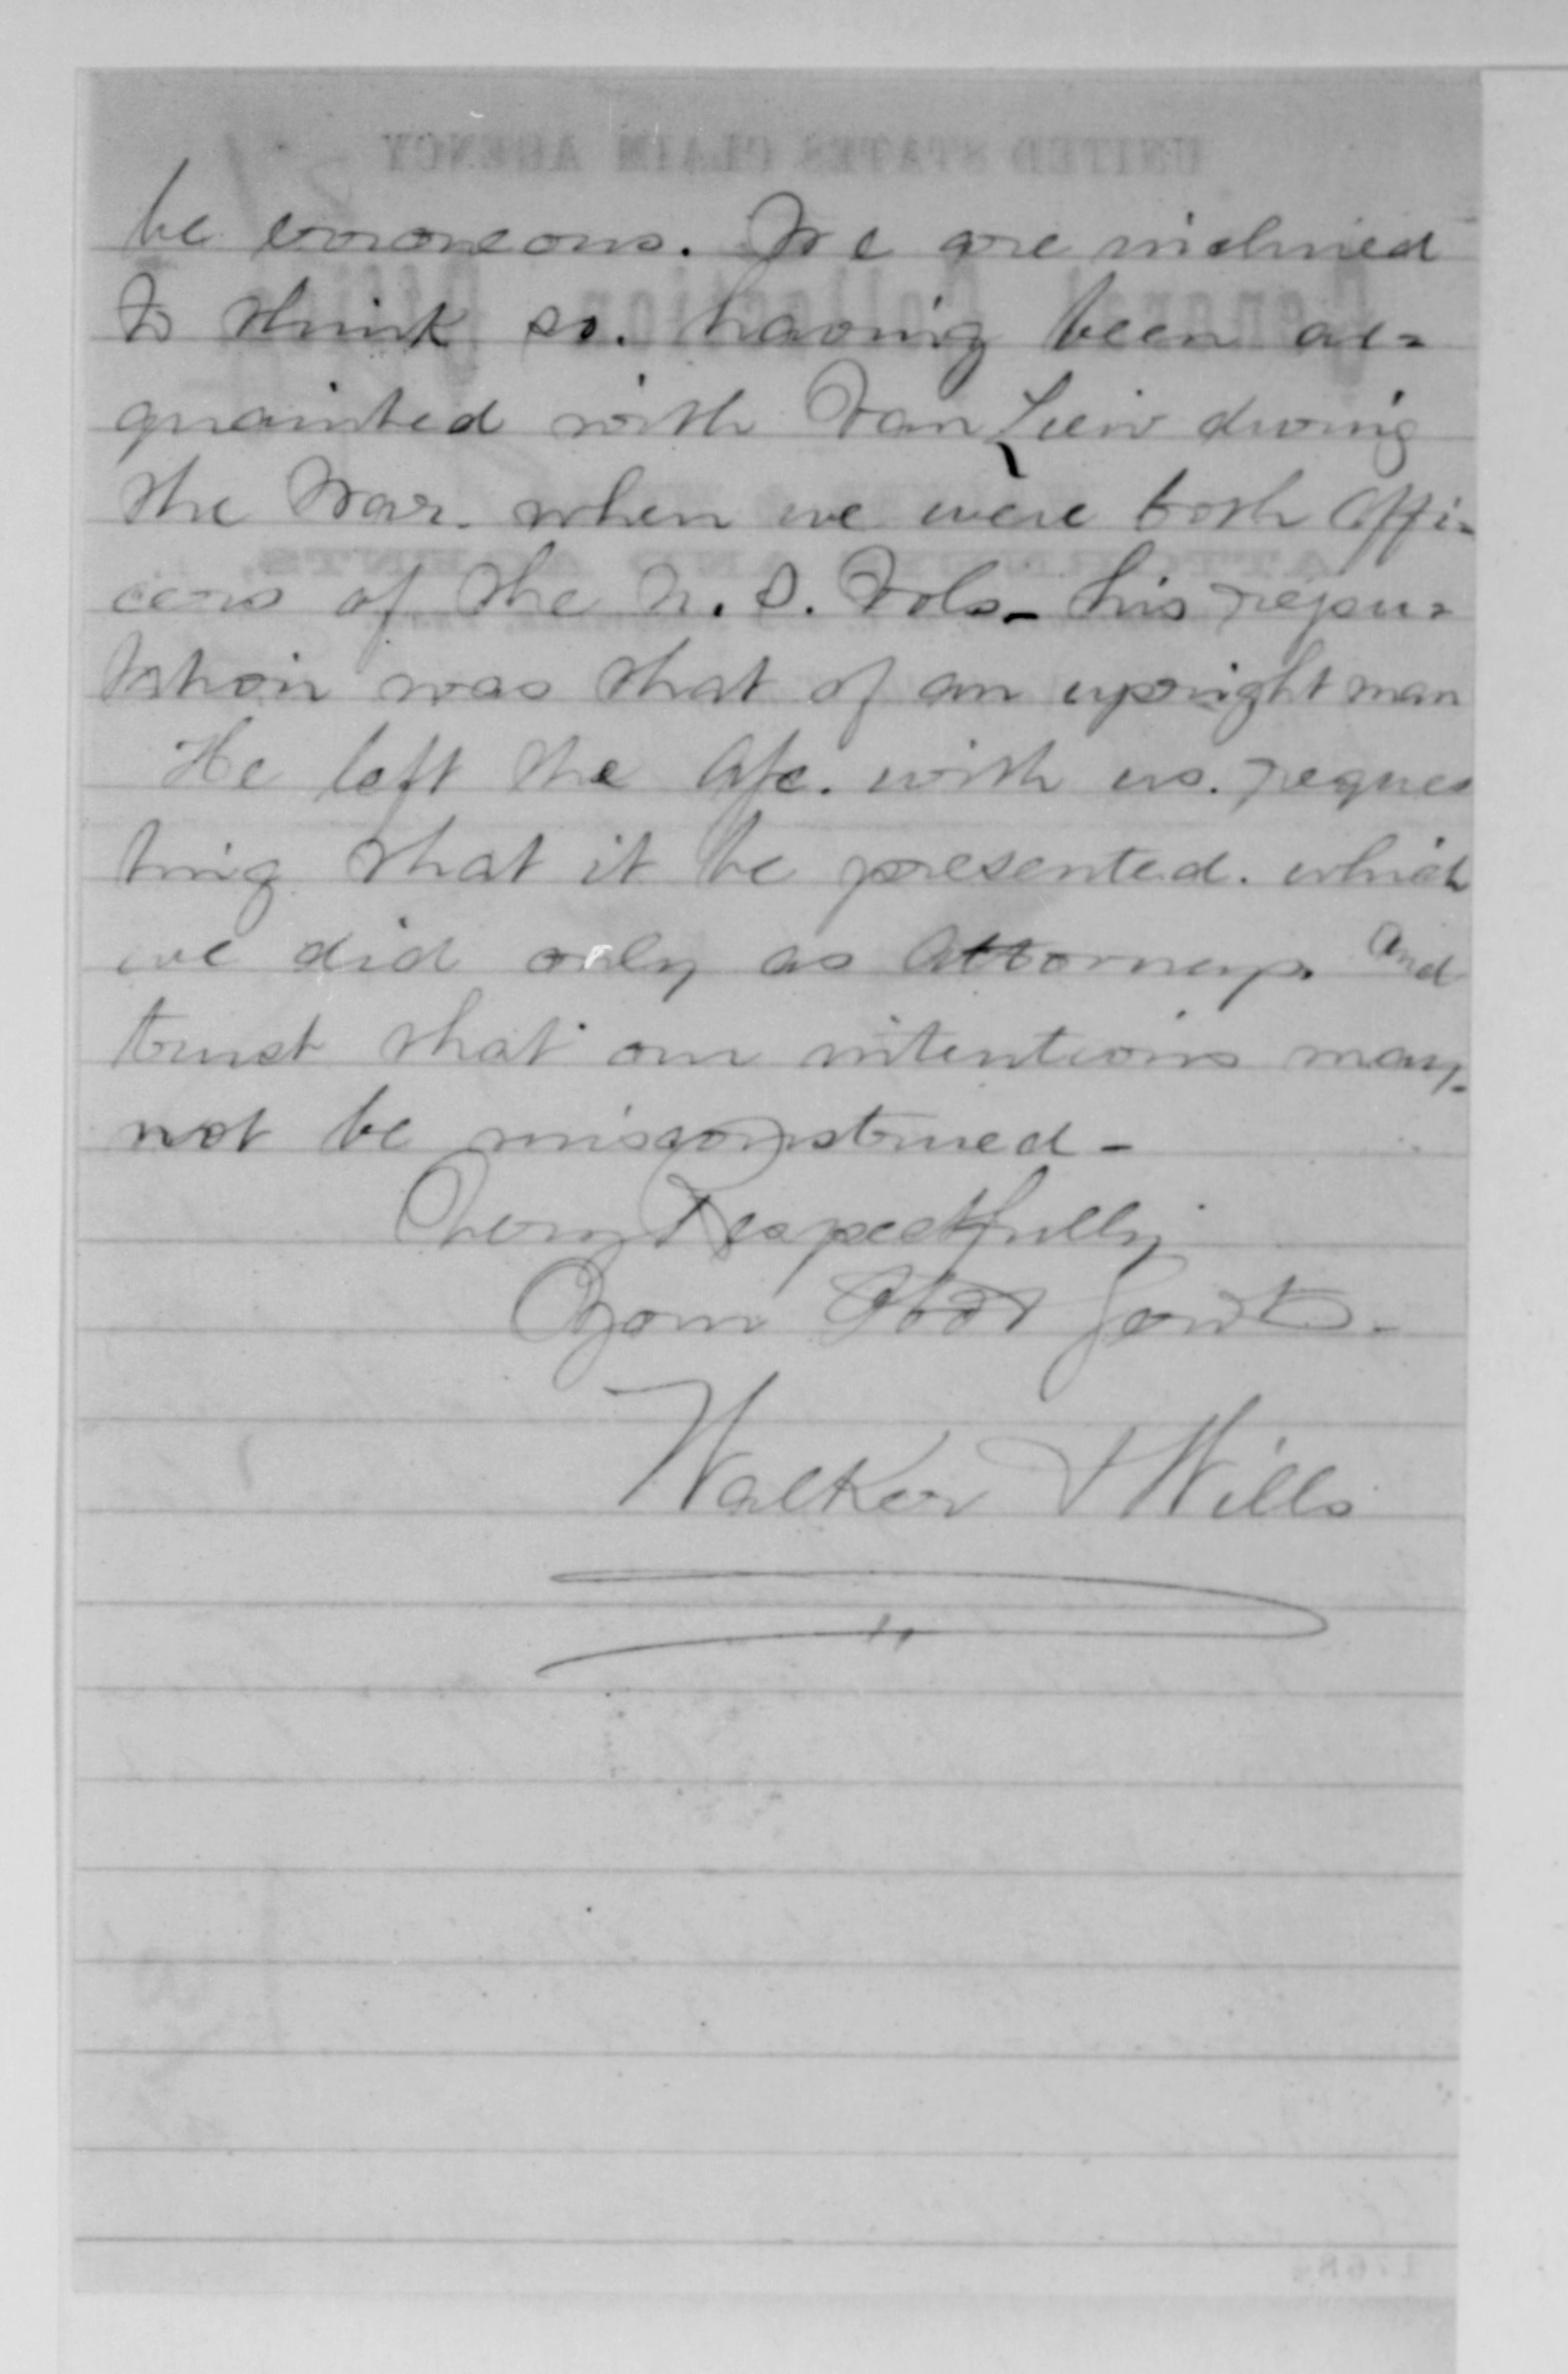 be erroneous. We are inclined
to think so. having been ac=
quainted with Van Liew during
the War. when we were both Offi=
cers of the U. S. Vols - his repu=
tation was that of an upright man
He left the a/c. with us. reques
ting that it be presented. which
we did only as Attorneys. And
trust that our intentions may
not be misconstrued -
Very Respectfully
Your Obdt Servts.
Walker & Wills